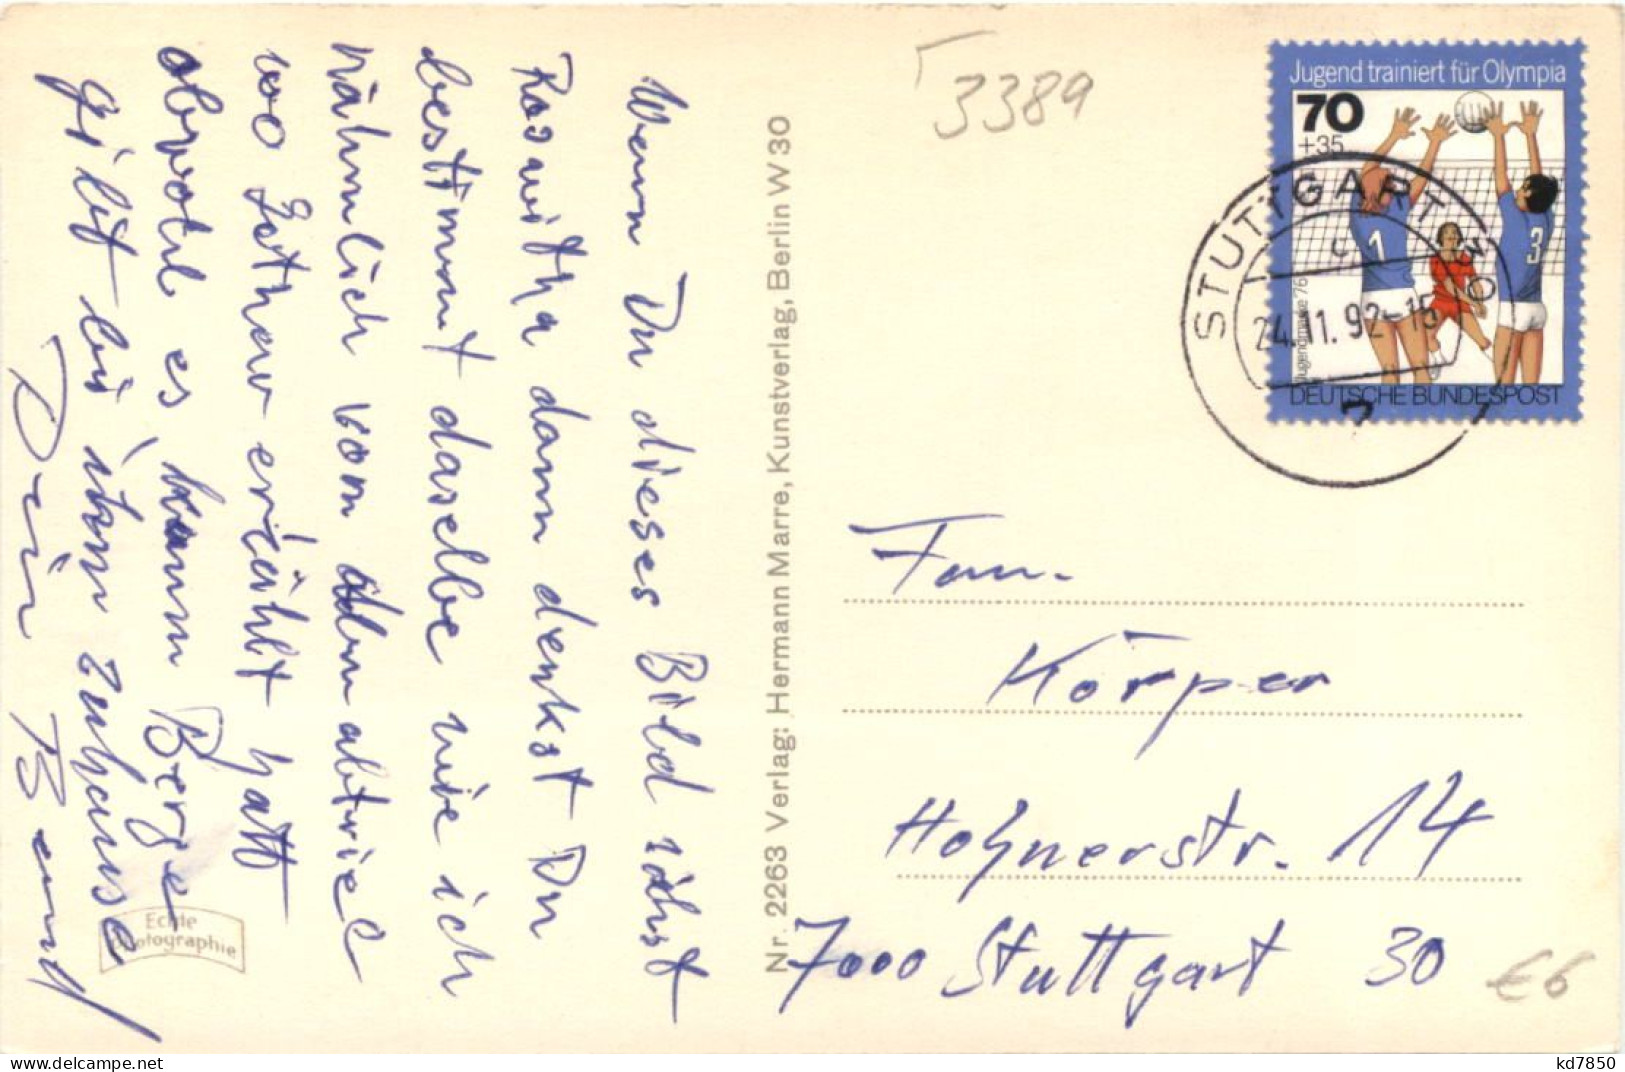 Wenn Du dieses Bild siehst
Roswitha dann denkst Du
bestimmt dasselbe wie ich
nähmlich vom abtriel
wo Lothar erzählt hatt
obwohl es kaum Berge
gibt bei ihm zuhause
Dein Bernd
Echte
Photographie
Nr. 2263 Verlag: Hermann Marre, Kunstverlag, Berlin W 30
3389
Jugend trainiert für Olympia
70
+35
1
3
Jugendmarke 76
DEUTSCHE BUNDESPOST
STUTTGART 30
24.11.92-15
Körper
Hohnerstr. 14
7000 Stuttgart 30
€6
kd7850